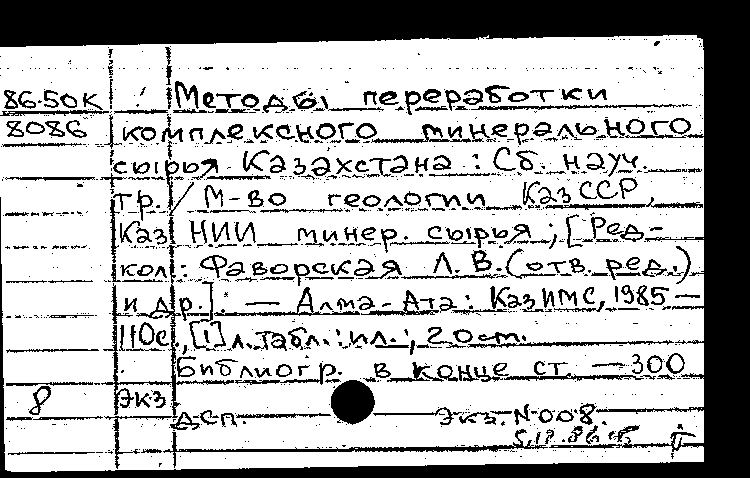 86-50К Методы переработки
8086 комплексного минерального
сырья Казахстана : Сб. науч.
тр. / М-во геологии КазССР,
Каз НИИ минер. сырья ; [Ред-
кол.: Фаворская Л. В. (отв. ред.)
и др.]. — Алма-Ата : КазИМС, 1985 —
110с., [1] л. табл. : ил. ; 20 cm.
Библиогр. в конце ст. — 300
8 экз.
ДСП. Экз. N 008.